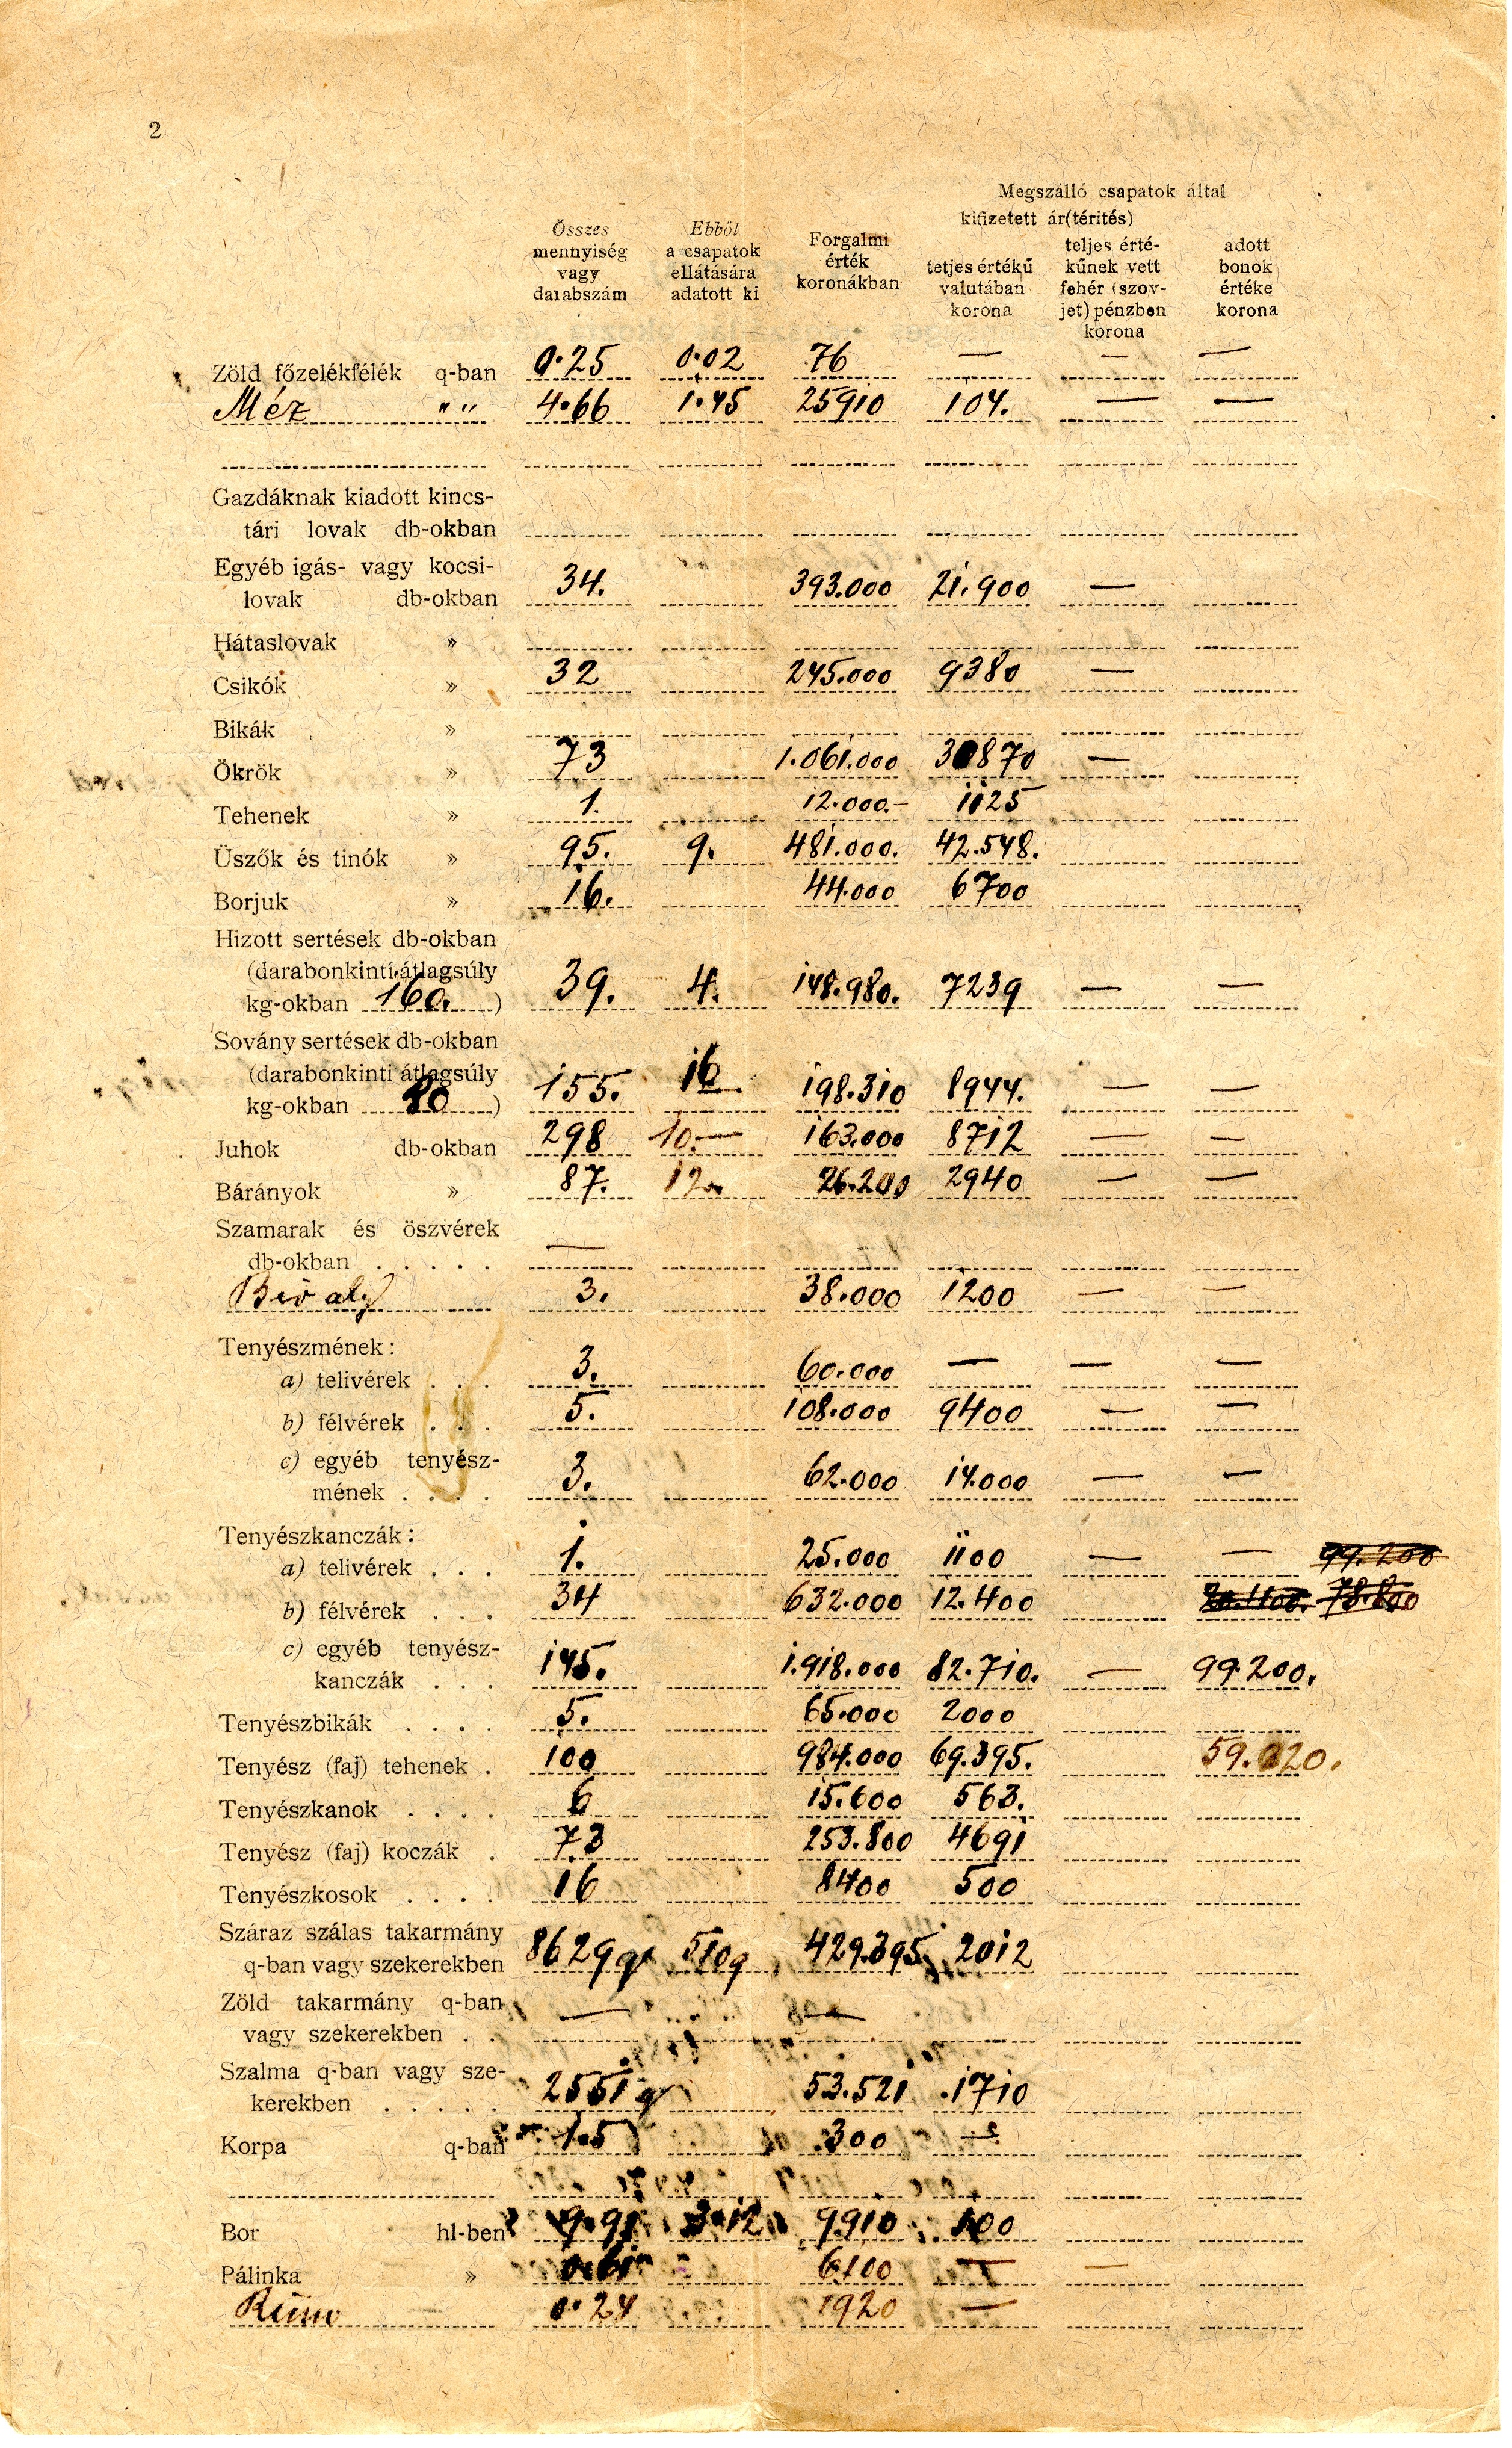 2
Megszálló csapatok által
kifizetett ár(térités)
Összes mennyiség vagy darabszám
Ebből a csapatok ellátására adatott ki
Forgalmi érték koronákban
tetjes értékű valutában korona
teljes érté- kűnek vett fehér (szov- jet) pénzben korona
adott bonok értéke korona
Zöld főzelékfélék q-ban 0·25 0·02 76 — — —
Méz " " 4·66 1·45 25910 104. — —
Gazdáknak kiadott kincs-
tári lovak db-okban
Egyéb igás- vagy kocsi-
lovak db-okban 34. 393.000 21.900 —
Hátaslovak »
Csikók » 32 245.000 9380 —
Bikák »
Ökrök » 73 1.061.000 30870 —
Tehenek » 1. 12.000.- 1125
Üszők és tinók » 95. 9. 481.000. 42.548.
Borjuk » 16. 44.000 6700
Hizott sertések db-okban
(darabonkinti átlagsúly
kg-okban 160. ) 39. 4. 148.980. 7239 — —
Sovány sertések db-okban
(darabonkinti átlagsúly
kg-okban 80 ) 155. 16 198.310 8944. — —
Juhok db-okban 298 10.— 163.000 8712 — —
Bárányok » 87. 12. 26.200 2940 — —
Szamarak és öszvérek
db-okban . . . . . —
Bivaly 3. 38.000 1200 — —
Tenyészmének:
a) telivérek . . . 3. 60.000 — — —
b) félvérek . . . 5. 108.000 9400 — —
c) egyéb tenyész-
mének . . . . 3. 62.000 14.000 — —
Tenyészkanczák:
a) telivérek . . . 1. 25.000 1100 — — 99.200
b) félvérek . . . 34 632.000 12.400 78.800
c) egyéb tenyész-
kanczák . . . 145. 1.918.000 82.710. — 99.200.
Tenyészbikák . . . . 5. 65.000 2000
Tenyész (faj) tehenek . 100 984.000 69.395. 59.020.
Tenyészkanok . . . . 6 15.600 563.
Tenyész (faj) koczák . 73 253.800 4691
Tenyészkosok . . . . 16 8400 500
Száraz szálas takarmány
q-ban vagy szekerekben 8629 q 510 q 429.395 2012
Zöld takarmány q-ban — —
vagy szekerekben . .
Szalma q-ban vagy sze-
kerekben . . . . . 2551 q 53.521 1710
Korpa q-ban 1.5 300 —
Bor hl-ben 9.91 3·12 9910 100
Pálinka » 0.61 6100 — —
0·24 1920 —